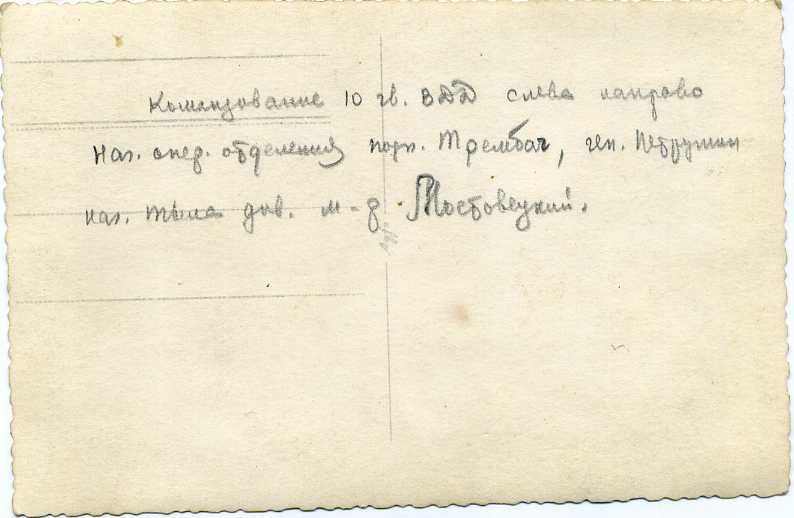 Командование 10 гв. ВДД слева направо
Нач. опер. отделения Трембач, ген. Петрушин
нач. тыла див. м-р Мостовецкий.